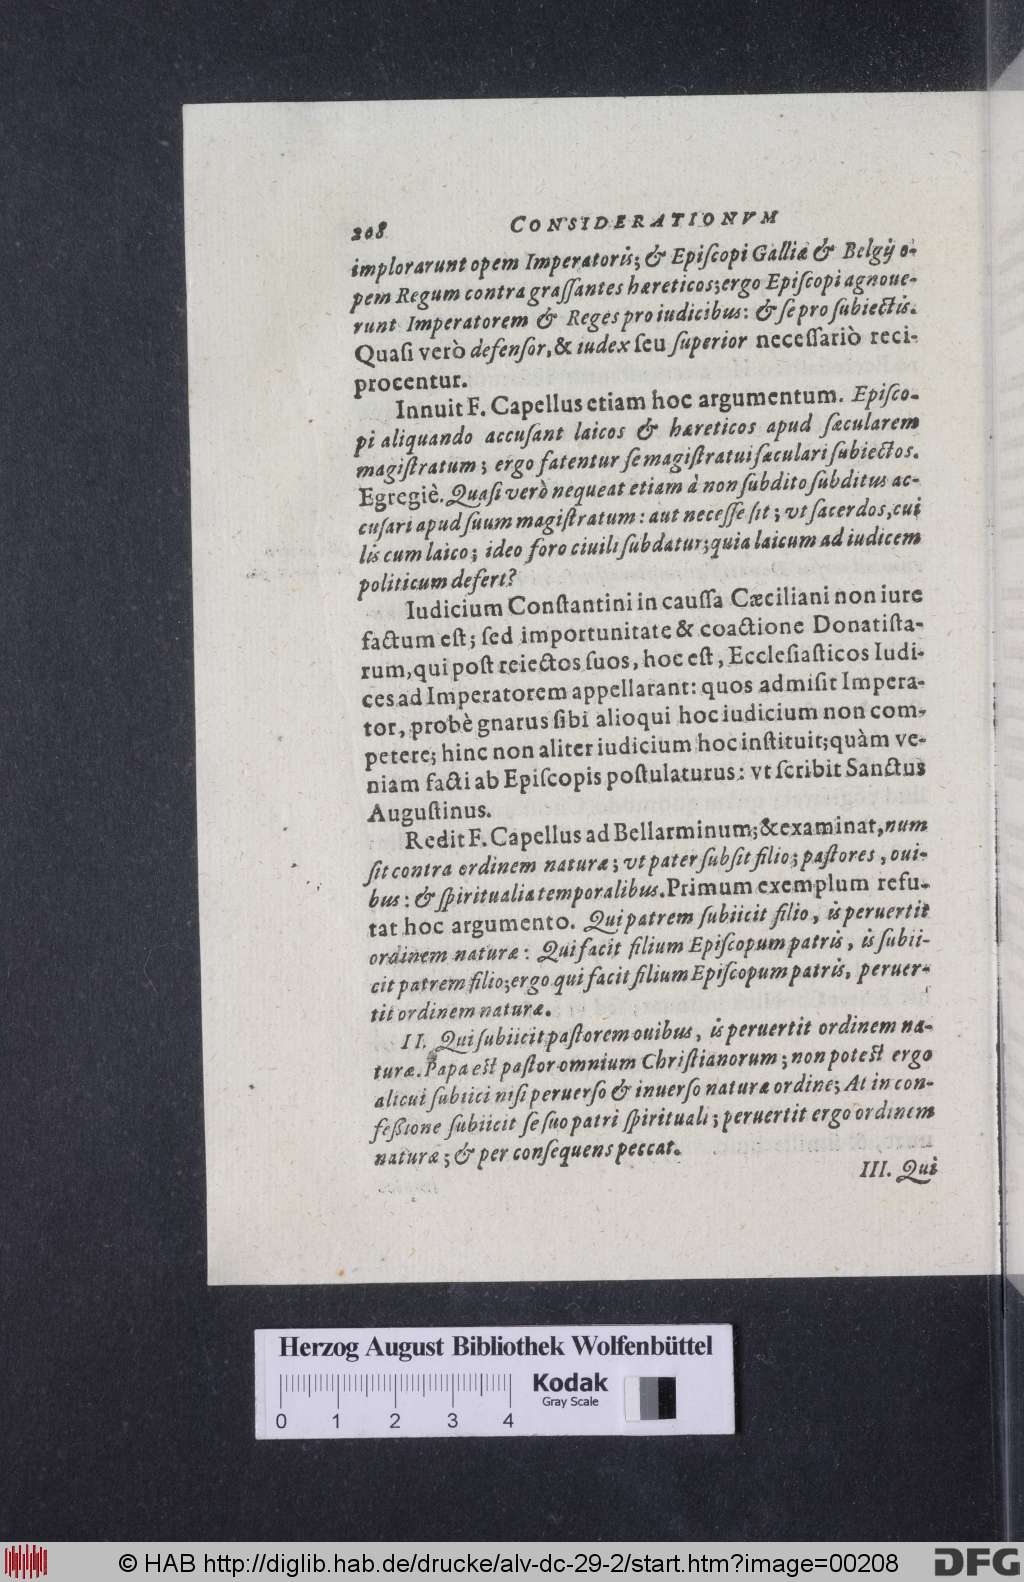 208 CONSIDERATIONVM
implorarunt opem Imperatoris; & Epiſcopi Galliæ & Belgij o-
pem Regum contra graſſantes hæreticos; ergo Epiſcopi agnoue-
runt Imperatorem & Reges pro iudicibus: & ſe pro ſubiectis.
Quaſi verò defenſor, & iudex ſeu ſuperior neceſſariò reci-
procentur.
Innuit F. Capellus etiam hoc argumentum. Epiſco-
pi aliquando accuſant laicos & hæreticos apud ſæcularem
magiſtratum; ergo fatentur ſe magiſtratui ſæculari ſubiectos.
Egregiè. Quaſi verò nequeat etiam à non ſubdito ſubditus ac-
cuſari apud ſuum magiſtratum: aut neceſſe ſit; vt ſacerdos, cui
lis cum laico; ideo foro ciuili ſubdatur; quia laicum ad iudicem
politicum defert?
Iudicium Conſtantini in cauſſa Cæciliani non iure
factum eſt; ſed importunitate & coactione Donatiſta-
rum, qui poſt reiectos ſuos, hoc eſt, Eccleſiaſticos Iudi-
ces ad Imperatorem appellarant: quos admiſit Impera-
tor, probè gnarus ſibi alioqui hoc iudicium non com-
petere; hinc non aliter iudicium hoc inſtituit; quàm ve-
niam facti ab Epiſcopis poſtulaturus: vt ſcribit Sanctus
Auguſtinus.
Redit F. Capellus ad Bellarminum; & examinat, num
ſit contra ordinem naturæ; vt pater ſubſit filio; paſtores, oui-
bus: & ſpiritualia temporalibus. Primum exemplum refu-
tat hoc argumento. Qui patrem ſubiicit filio, is peruertit
ordinem naturæ: Qui facit filium Epiſcopum patris, is ſubii-
cit patrem filio; ergo qui facit filium Epiſcopum patris, peruer-
tit ordinem naturæ.
II. Qui ſubiicit paſtorem ouibus, is peruertit ordinem na-
turæ. Papa eſt paſtor omnium Chriſtianorum; non poteſt ergo
alicui ſubiici niſi peruerſo & inuerſo naturæ ordine; At in con-
feßione ſubiicit ſe ſuo patri ſpirituali; peruertit ergo ordinem
naturæ; & per conſequens peccat.
III. Qui
Herzog August Bibliothek Wolfenbüttel
Kodak
Gray Scale
0 1 2 3 4
© HAB http://diglib.hab.de/drucke/alv-dc-29-2/start.htm?image=00208
DFG